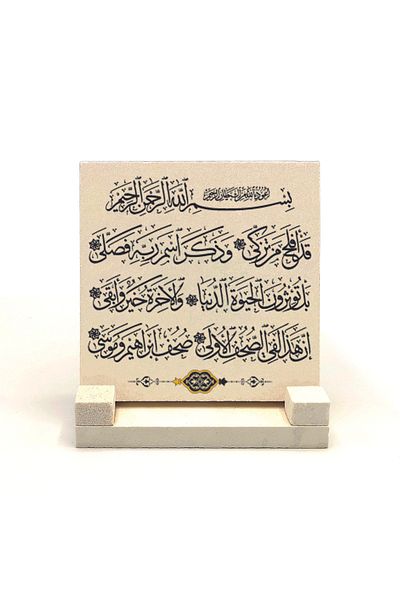 أعوذ بالله من الشيطان الرجيم
بسم الله الرحمن الرحيم
قد افلح من تزكى وذكر اسم ربه فصلى
بل تؤثرون الحيوة الدنيا والاخرة خير وابقى
ان هذا لفى الصحف الاولى صحف ابراهيم وموسى